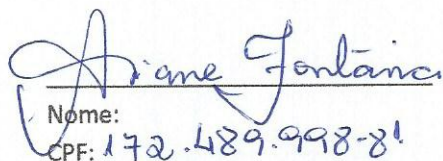 Ariane Fontana
Nome:
CPF: 172.489.998-81